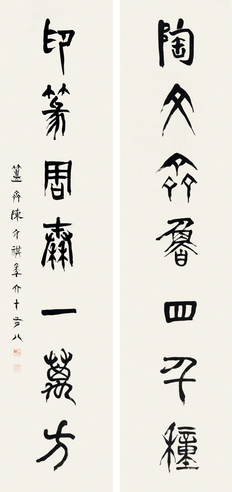 陶文齊魯四千種
印篆周秦一萬方
簠齋陳介祺年六十有八